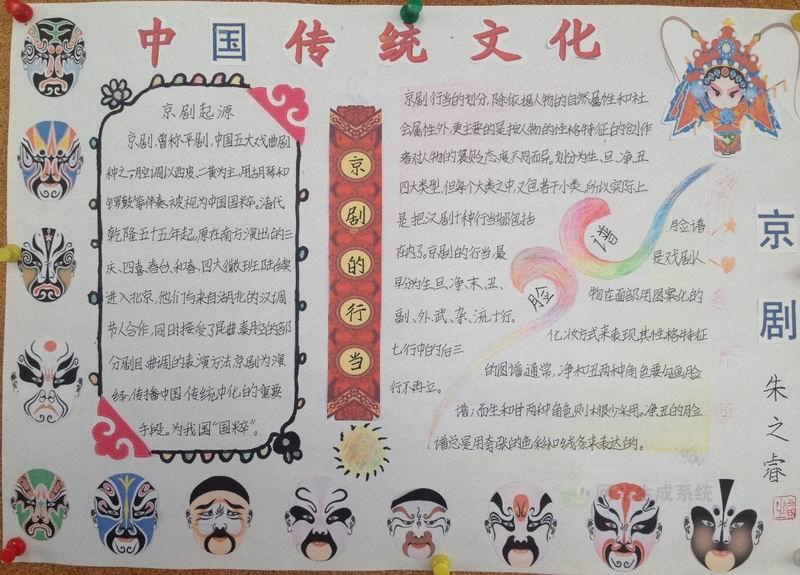 中国传统文化
京剧起源
京剧,曾称平剧,中国五大戏曲剧
种之一,腔调以西皮、二黄为主,用胡琴和
锣鼓等伴奏,被视为中国国粹。清代
乾隆五十五年起,原在南方演出的三
庆、四喜、春台、和春,四大徽班陆续
进入北京,他们与来自湖北的汉调
艺人合作,同时接受了昆曲秦腔的部
分剧目曲调的表演方法京剧为演
传播中国传统文化的重要
手段。为我国“国粹”。
京剧的行当
京剧行当的划分,除依据人物的自然属性和社
会属性外,更主要的是按人物的性格特征的创作
者对人物的褒贬态度不同而异,划分为生、旦、净、丑
四大类型,但每个大类之中,又包若干小类,所以实际上
是把汉剧十种行当都包括
在内了。京剧的行当最
早分为生、旦、净、末、丑、
副、外、武、杂、流十行。
七行中的后三
行不再立。
脸谱
脸谱
是戏剧人
物在面部用图案化的
化妆方式来表现其性格特征
的图谱通常,净和丑两种角色要勾画脸
谱,而生和旦两种角色则很少采用。净丑的脸
谱总是用夸张的色彩和线条来表达的。
京剧
朱之睿